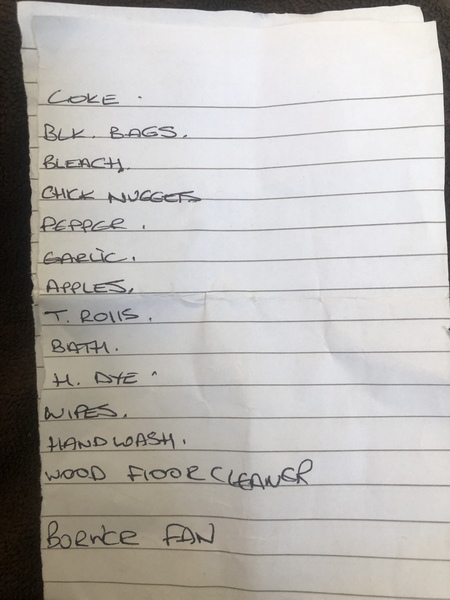 COKE.
BLK. BAGS.
BLEACH.
CHICK NUGGETS
PEPPER.
GARLIC.
APPLES.
T. ROLLS.
BATH.
H. DYE
WIPES.
HANDWASH.
WOOD FLOOR CLEANER
FAN